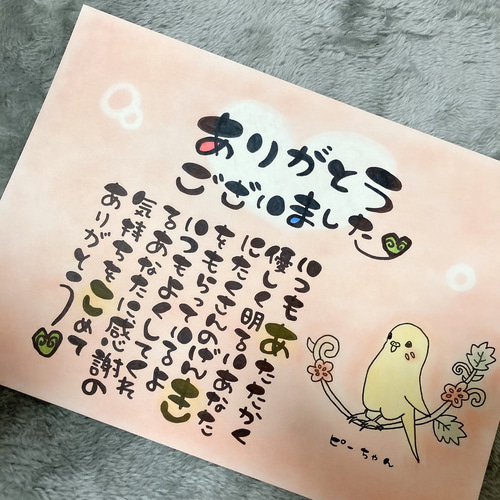 ありがとう
ございました
いつもあたたかく
優しく明るいあなた
にたくさんのげんき
をもらっているよ
いつもよくしてくれ
るあなたに感謝の
気持ちをこめて
ありがとう
ピーちゃん